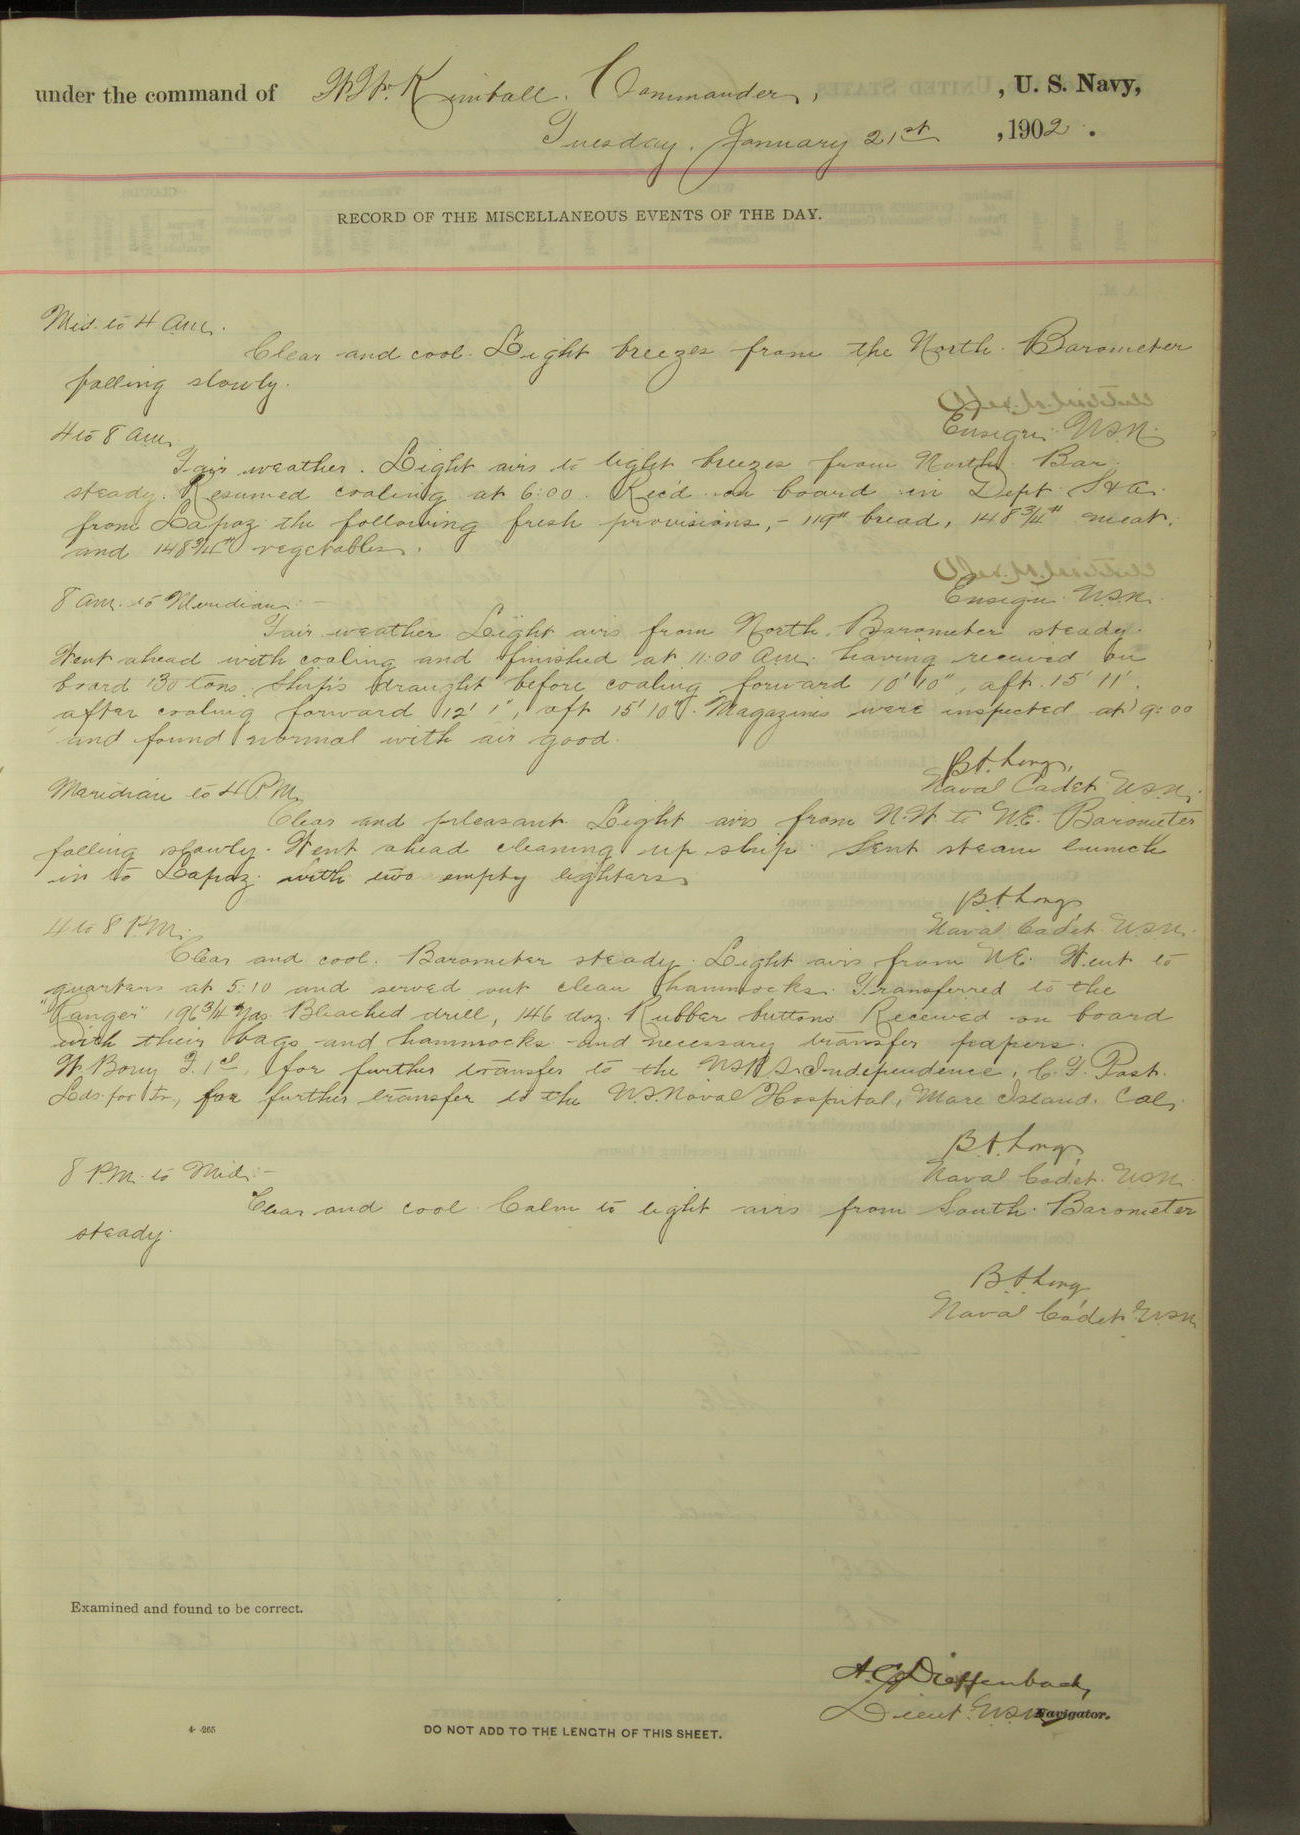 under the command of W. W. Kimball. Commander, , U. S. Navy,
Tuesday. January 21st , 1902.
RECORD OF THE MISCELLANEOUS EVENTS OF THE DAY.
Mid. to 4 a.m.
Clear and cool. Light breezes from the North. Barometer
falling slowly.
Ensign. U.S.N.
4 to 8 a.m.
Fair weather. Light airs to light breezes from North. Bar.
steady. Resumed coaling at 6:00. Rec'd on board in Dept. S & A.
from Lapaz the following fresh provisions,- 119# bread, 148 3/4# meat,
and 148 3/4# vegetables.
Ensign U.S.N.
8 a.m. to Meridian:-
Fair weather Light airs from North. Barometer steady.
Went ahead with coaling and finished at 11:00 a.m. having received on
board 130 tons. Ship's draught before coaling forward 10' 10", aft. 15' 11'.
after coaling forward 12' 1", aft 15' 10". Magazines were inspected at 9:00
and found normal with air good.
Long,
Naval Cadet U.S.N.
Meridian to 4 P.M.
Clear and pleasant. Light airs from N.W. to N.E. Barometer
falling slowly. Went ahead cleaning up ship. Sent steam launch
in to Lapaz with two empty lighters
Long,
Naval Cadet U.S.N.
4 to 8 P.M.
Clear and cool. Barometer steady. Light airs from N.E. Went to
quarters at 5:10 and served out clean hammocks. Transferred to the
"Ranger" 196 3/4 yds. Bleached drill, 146 doz. Rubber buttons Received on board
with their bags and hammocks and necessary transfer papers.
W. F. 1 cl, for further transfer to the U.S.R.S. Independence, C. F. Post.
Lds. for tr., for further transfer to the U.S. Naval Hospital, Mare Island. Cal.
Long,
Naval Cadet. U.S.N.
8 P.M. to Mid:-
Clear and cool. Calm to light airs from South. Barometer
steady.
Long
Naval Cadet U.S.N.
Examined and found to be correct.
A. C. Dieffenbach,
Lieut. U.S.N. Navigator.
4-265
DO NOT ADD TO THE LENGTH OF THIS SHEET.